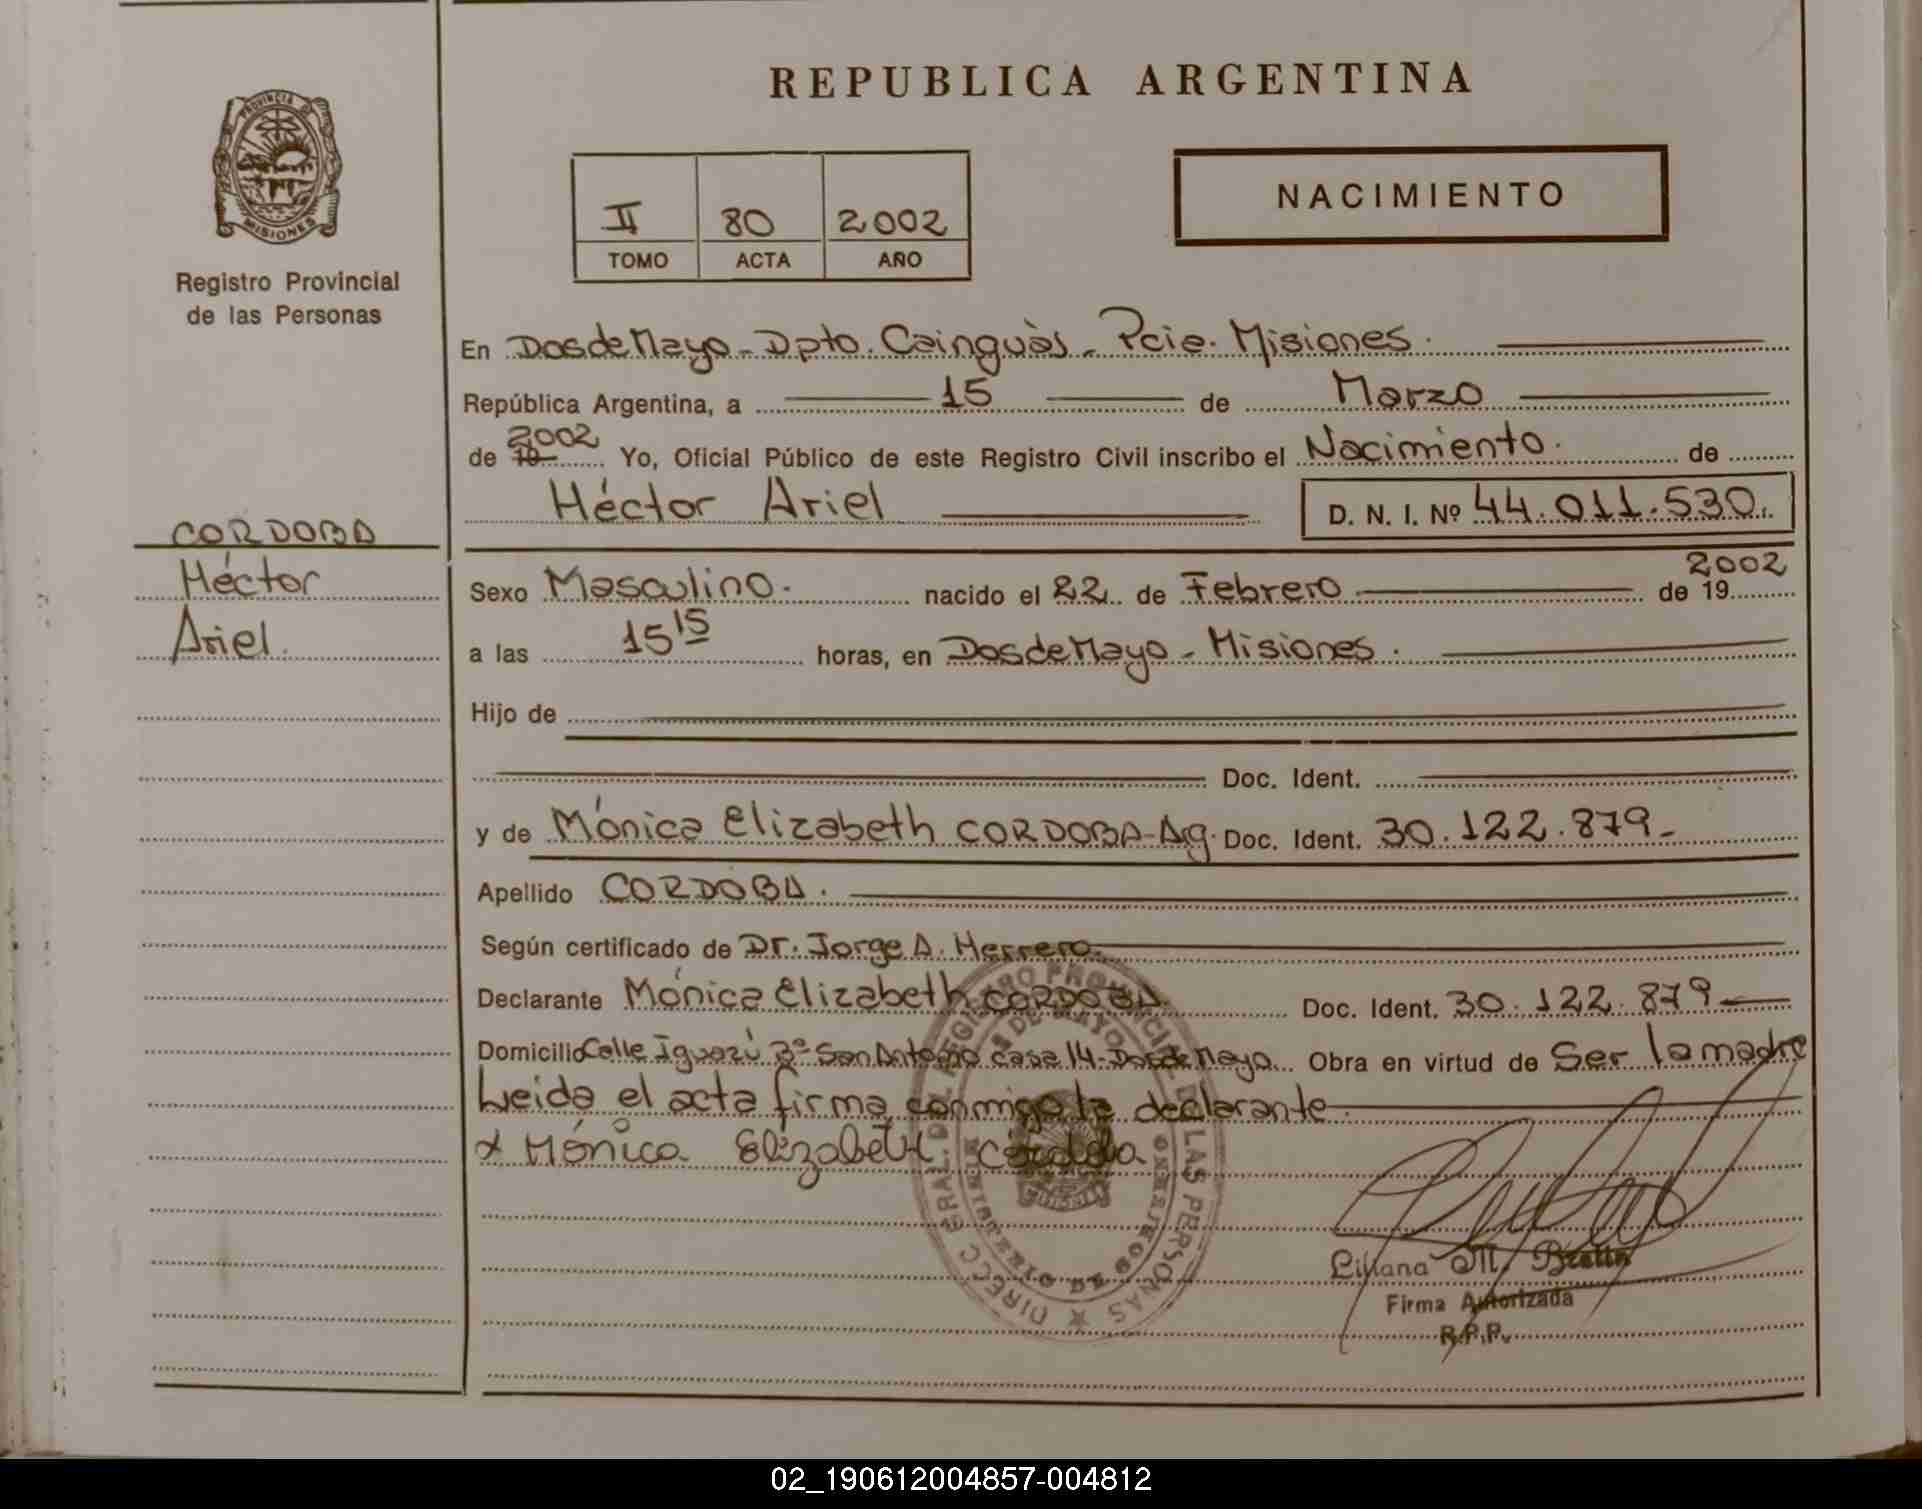 REPUBLICA ARGENTINA
PROVINCIA DE
MISIONES
Registro Provincial
de las Personas
II 80 2002
TOMO ACTA AÑO
NACIMIENTO
En Dos de Mayo - Dpto. Cainguàs - Pcia. Misiones.
República Argentina, a 15 de Marzo
de 19 2002 Yo, Oficial Público de este Registro Civil inscribo el Nacimiento. de
Héctor Ariel D. N. I. Nº 44.011.530.
CORDOBA
Héctor
Ariel.
Sexo Masculino. nacido el 22 de Febrero de 19 2002
a las 15 15 horas, en Dos de Mayo - Misiones.
Hijo de
Doc. Ident.
y de Mónica Elizabeth CORDOBA - Arg. Doc. Ident. 30.122.879-
Apellido CORDOBA.
Según certificado de Dr. Jorge A. Herrero.
Declarante Mónica Elizabeth CORDOBA. Doc. Ident. 30.122.879
Domicilio Calle Iguazú Bº San Antonio casa 14 - Dos de Mayo Obra en virtud de Ser la madre
Leida el acta firma conmigo la declarante.
x Mónica Elizabeth Córdoba
DIRECC. GRAL. DEL REGISTRO PROVINCIAL DE LAS PERSONAS
MINISTERIO DE GOBIERNO
DE MAYO
Liliana M.
Firma Autorizada
R.P.P.
02_190612004857-004812